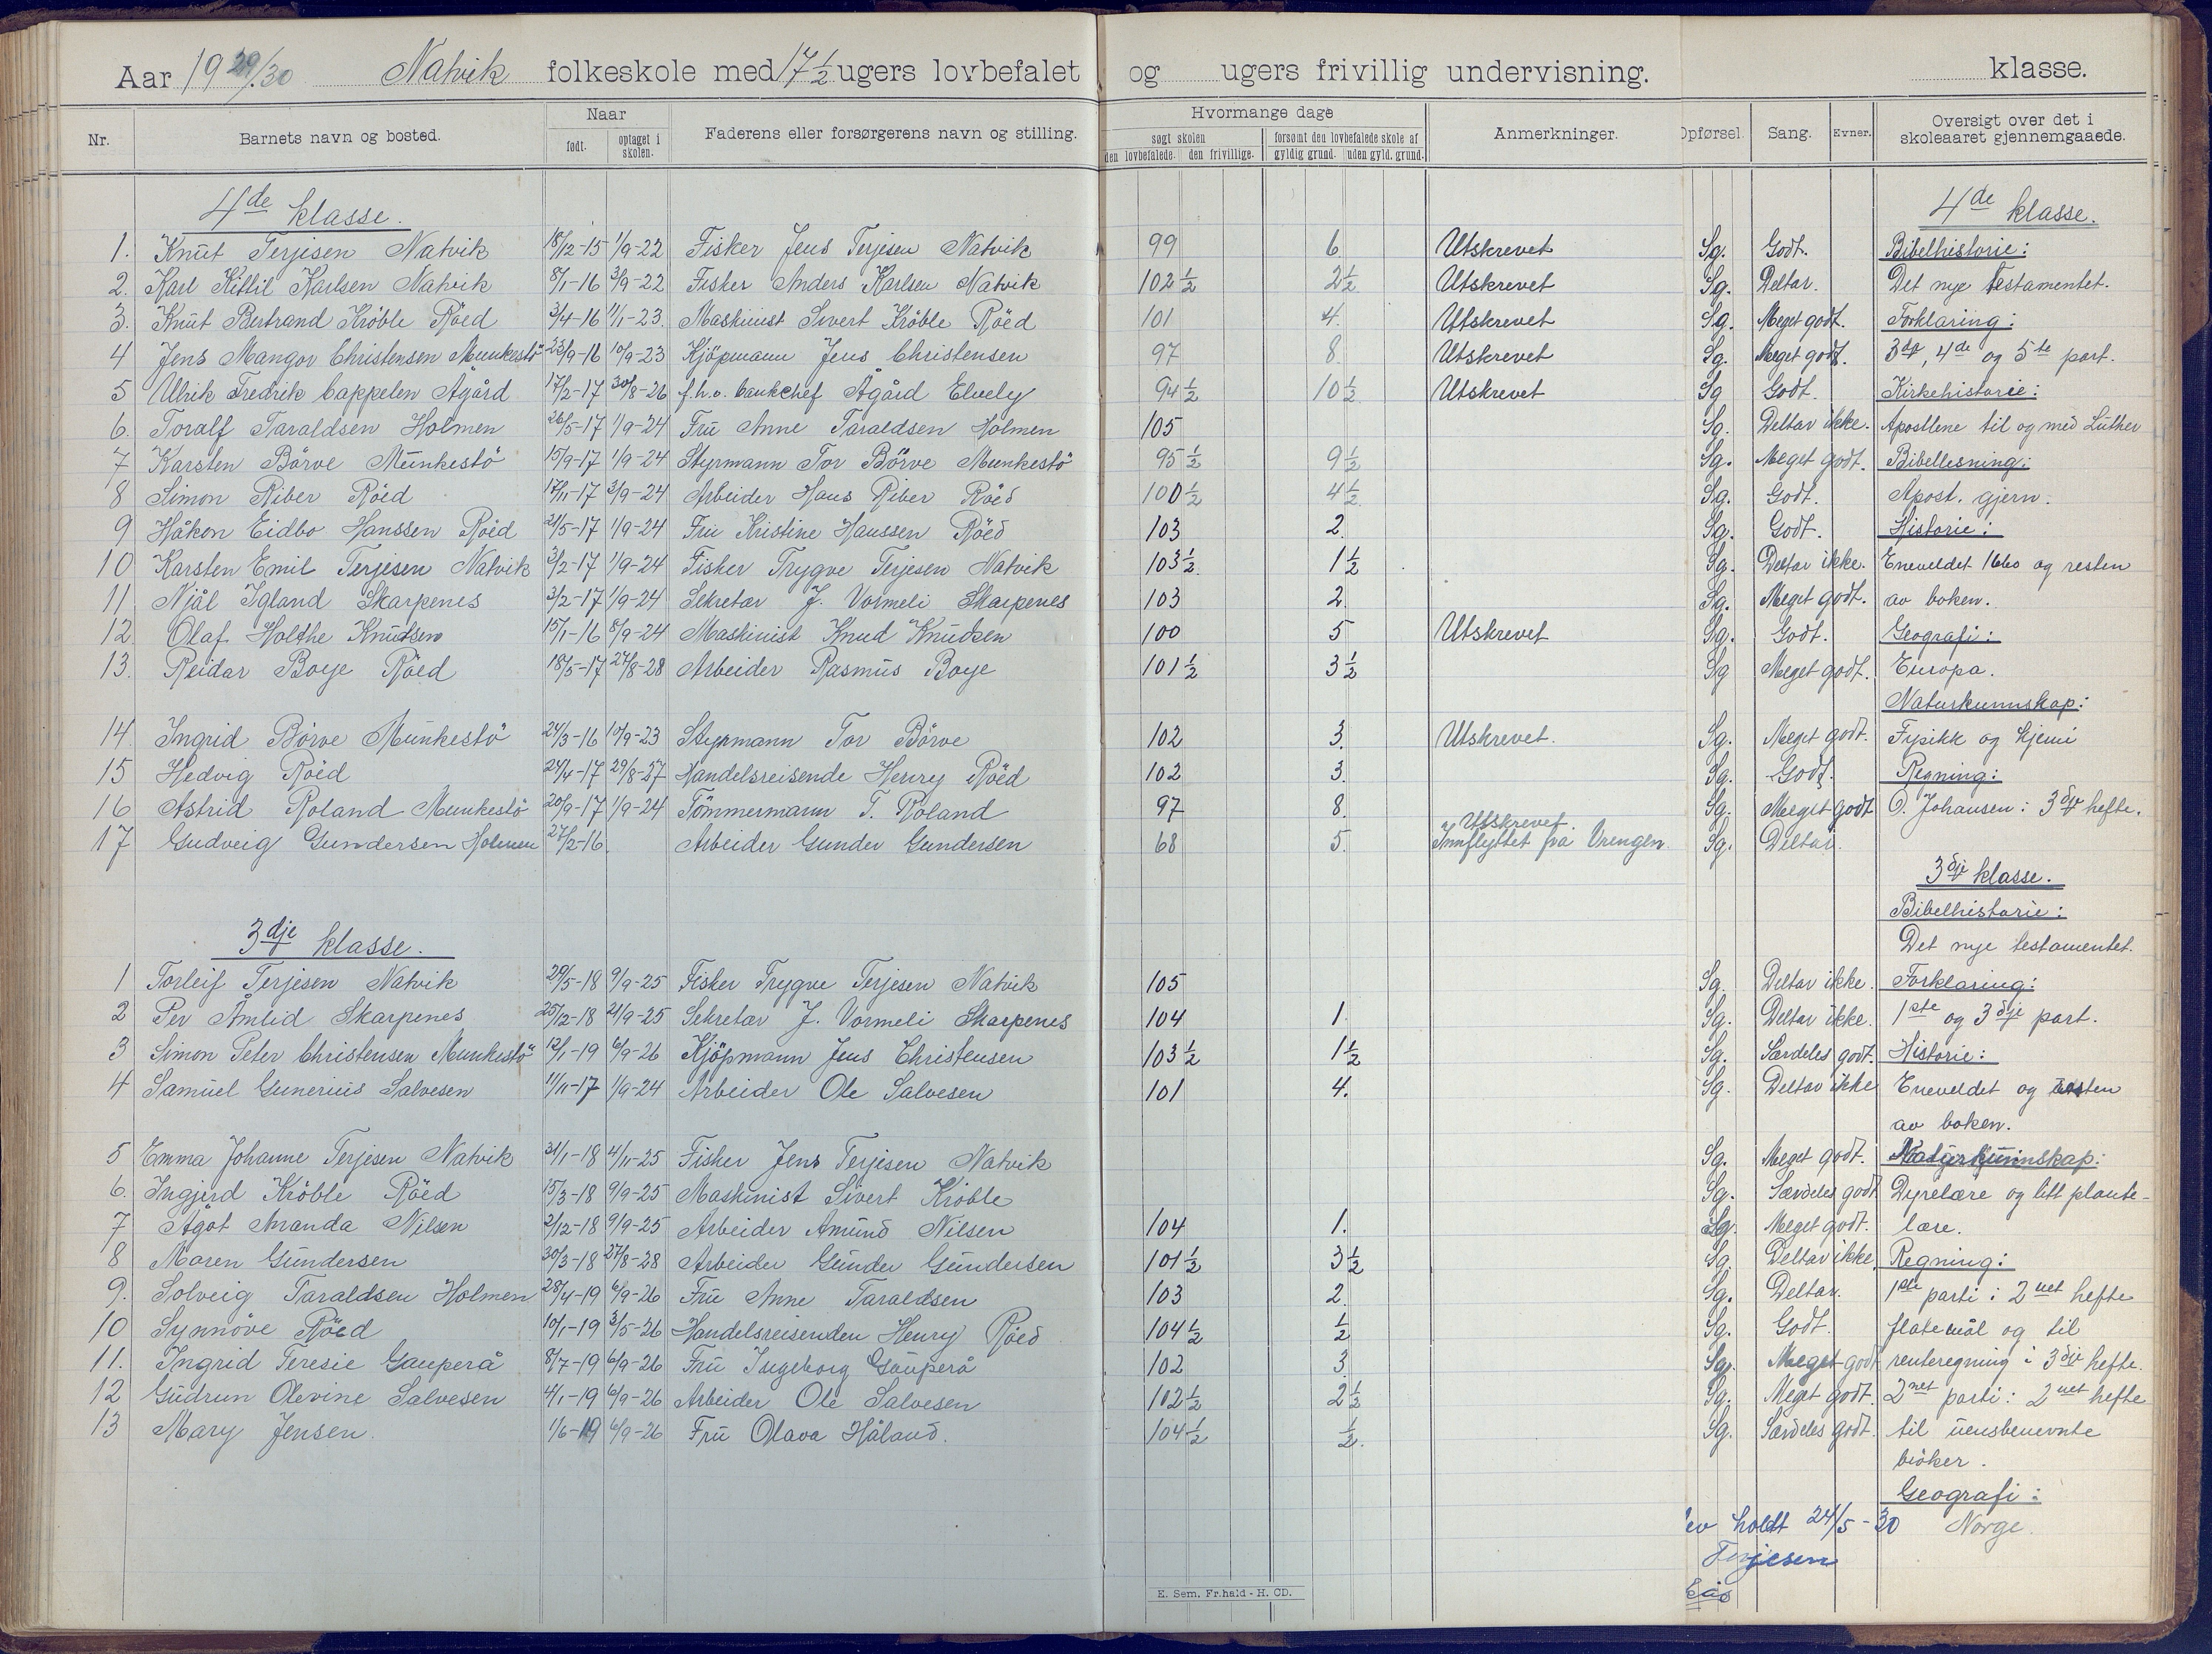 Aar 1929/30 Natvik folkeskole med 17 ½ ugers lovbefalet og ugers frivillig undervisning. klasse.
Nr. Barnets navn og bosted. Naar født. optaget i skolen. Faderens eller forsørgerens navn og stilling. Hvormange dage søgt skolen den lovbefalede. den frivillige. forsømt den lovbefalede skole af gyldig grund. uden gyld. grund. Anmerkninger. Opførsel. Sang. Evner. Oversigt over det i skoleaaret gjennemgaaede.
4de klasse. 4de klasse.
1. Knut Terjesen Natvik 18/12-15 1/9-22 Fisker Jens Terjesen Natvik 99 6 Utskrevet Sg. Godt. Bibelhistorie:
2. Karl Kittil Karlsen Natvik 8/1-16 3/9-22 Fisker Anders Karlsen Natvik 102 ½ 2 ½ Utskrevet Sg. Deltar. Det nye testamentet.
3. Knut Bertrand Kröble Röed 3/4-16 11/1-23. Maskinist Sivert Kröble Röed 101 4. Utskrevet Sg. Meget godt. Forklaring:
4 Jens Mangor Christensen Munkestö 23/9-16 10/9-23 Kjöpmann Jens Christensen 97 8 Utskrevet Sg. Meget godt. 3dje, 4de og 5te part.
5 Ulrik Fredrik Cappelen Ågård 17/2-17 30/8-26 f.h.v. bankchef Ågård Elvely 94 ½ 10 ½ Utskrevet Sg Godt. Kirkehistorie:
6. Toralf Taraldsen Holmen 26/5-17 1/9-24 Fru Anne Taraldsen Holmen 105 Sg. Deltar ikke. Apostlene til og med Luther
7 Karsten Börve Munkestö 15/9-17 1/9-24 Styrmann Tor Börve Munkestö 95 ½ 9 ½ Sg. Meget godt. Bibellesning:
8 Simon Riber Röed 17/11-17 3/9-24 Arbeider Hans Riber Röed 100 ½ 4 ½ Sg. Godt. Apost. gjern.
9 Håkon Eidbo Hanssen Röed 21/5-17 1/9-24 Fru Kristine Hanssen Röed 103 2. Sg. Godt. Historie:
10 Karsten Emil Terjesen Natvik 3/2-17 1/9-24 Fisker Trygve Terjesen Natvik 103 ½ 1 ½ Sg. Deltar ikke. Eneveldet 1660 og resten
11 Njål Igland Skarpenes 3/2-17 1/9-24 Sekretær J. Vormeli Skarpenes 103 2. Sg. Meget godt. av boken.
12. Olaf Holthe Knutsen 15/1-16 8/9-24 Maskinist Knud Knudsen 100 5 Utskrevet Sg. Godt. Geografi:
13. Reidar Boye Röed 18/5-17 27/8-28 Arbeider Rasmus Boye 101 ½ 3 ½ Sg Meget godt. Europa.
Naturkunnskap:
14. Ingrid Börve Munkestö 24/3-16 10/9-23 Styrmann Tor Börve 102 3. Utskrevet. Sg. Meget godt. Fysikk og kjemi
15 Hedvig Röed 24/4-17 29/8-27 Handelsreisende Henry Röed 102 3. Sg. Godt. Regning:
16 Astrid Roland Munkestö 20/9-17 1/9-24 Tömmermann T. Roland 97 8. Sg. Meget godt O. Johansen: 3dje hefte.
17 Gudveig Gundersen Holmen 27/2-16. Arbeider Gunder Gundersen 68 5. Utskrevet. Innflyttet fra Vrengen. Sg. Deltar.
3dje klasse.
Bibelhistorie:
3dje klasse. Det nye testamentet.
1 Torleif Terjesen Natvik 29/5-18 9/9-25 Fisker Trygve Terjesen Natvik 105 Sg. Deltar ikke. Forklaring:
2 Per Åmlid Skarpenes 25/12-18 21/9-25 Sekretær J. Vormeli Skarpenes 104 1. Sg. Deltar ikke. 1ste og 3dje part.
3 Simon Peter Christensen Munkestö 12/1-19 6/9-26 Kjöpmann Jens Christensen 103 ½ 1 ½ Sg. Særdeles godt. Historie:
4 Samuel Gunerius Salvesen 11/11-17 1/9-24 Arbeider Ole Salvesen 101 4. Sg. Deltar ikke Eneveldet og resten
av boken.
5 Emma Johanne Terjesen Natvik 31/1-18 4/11-25 Fisker Jens Terjesen Natvik Sg. Meget godt. Naturkunnskap:
6. Ingjerd Kröble Röed 15/3-18 9/9-25 Maskinist Sivert Kröble Sg. Særdeles godt Dyrelære og litt plante-
7 Ågöt Amanda Nilsen 2/12-18 9/9-25 Arbeider Amund Nilsen 104 1. Sg. Meget godt. lære.
8 Maren Gundersen 30/3-18 27/8-28 Arbeider Gunder Gundersen 101 ½ 3 ½ Sg. Deltar ikke. Regning:
9. Solveig Taraldsen Holmen 28/4-19 6/9-26 Fru Anne Taraldsen 103 2. Sg. Deltar. 1ste parti: 2net hefte
10 Synnöve Röed 10/1-19 3/5-26 Handelsreisenden Henry Röed 104 ½ ½ Sg. Godt. flatemål og til
11. Ingrid Teresie Gauperå 8/7-19 6/9-26 Fru Ingeborg Gauperå 102 3. Sg. Meget godt renteregning i 3dje hefte.
12 Gudrun Olevine Salvesen 4/1-19 6/9-26 Arbeider Ole Salvesen 102 ½ 2 ½ Sg. Meget godt. 2net parti: 2net hefte
13 Mary Jensen. 1/6-19 6/9-26 Fru Olava Håland. 104 ½ ½. Sg. Særdeles godt. til uensbenevnte
bröker.
Geografi:
lev holdt 24/5-30 Norge.
Terjesen
E. Sem. Fr.hald - H. CD.